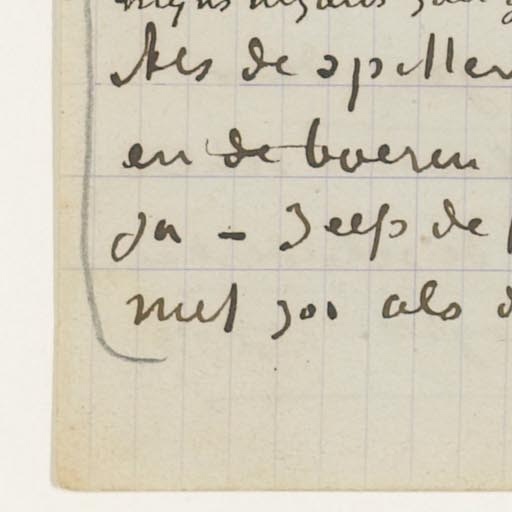 Als de spellen
en de boeren
Ja – zelfs de
niet zoo als d